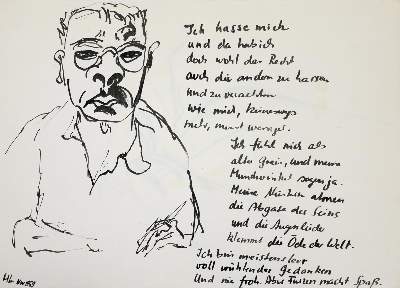 Ich hasse mich
und da hab ich
doch wohl das Recht
auch die andern zu hassen
und zu verachten
wie mich, keineswegs
mehr, meist weniger.
Ich fühl mich als
alter Greis, und meine
Mundwinkel sagen ja.
Meine Nüstern atmen
die Abgase des Seins
und die Augenlider
klemmt die Öde der Welt.
Ich bin meistens leer
voll wühlender Gedanken
Und nie froh. Aber macht Spaß.